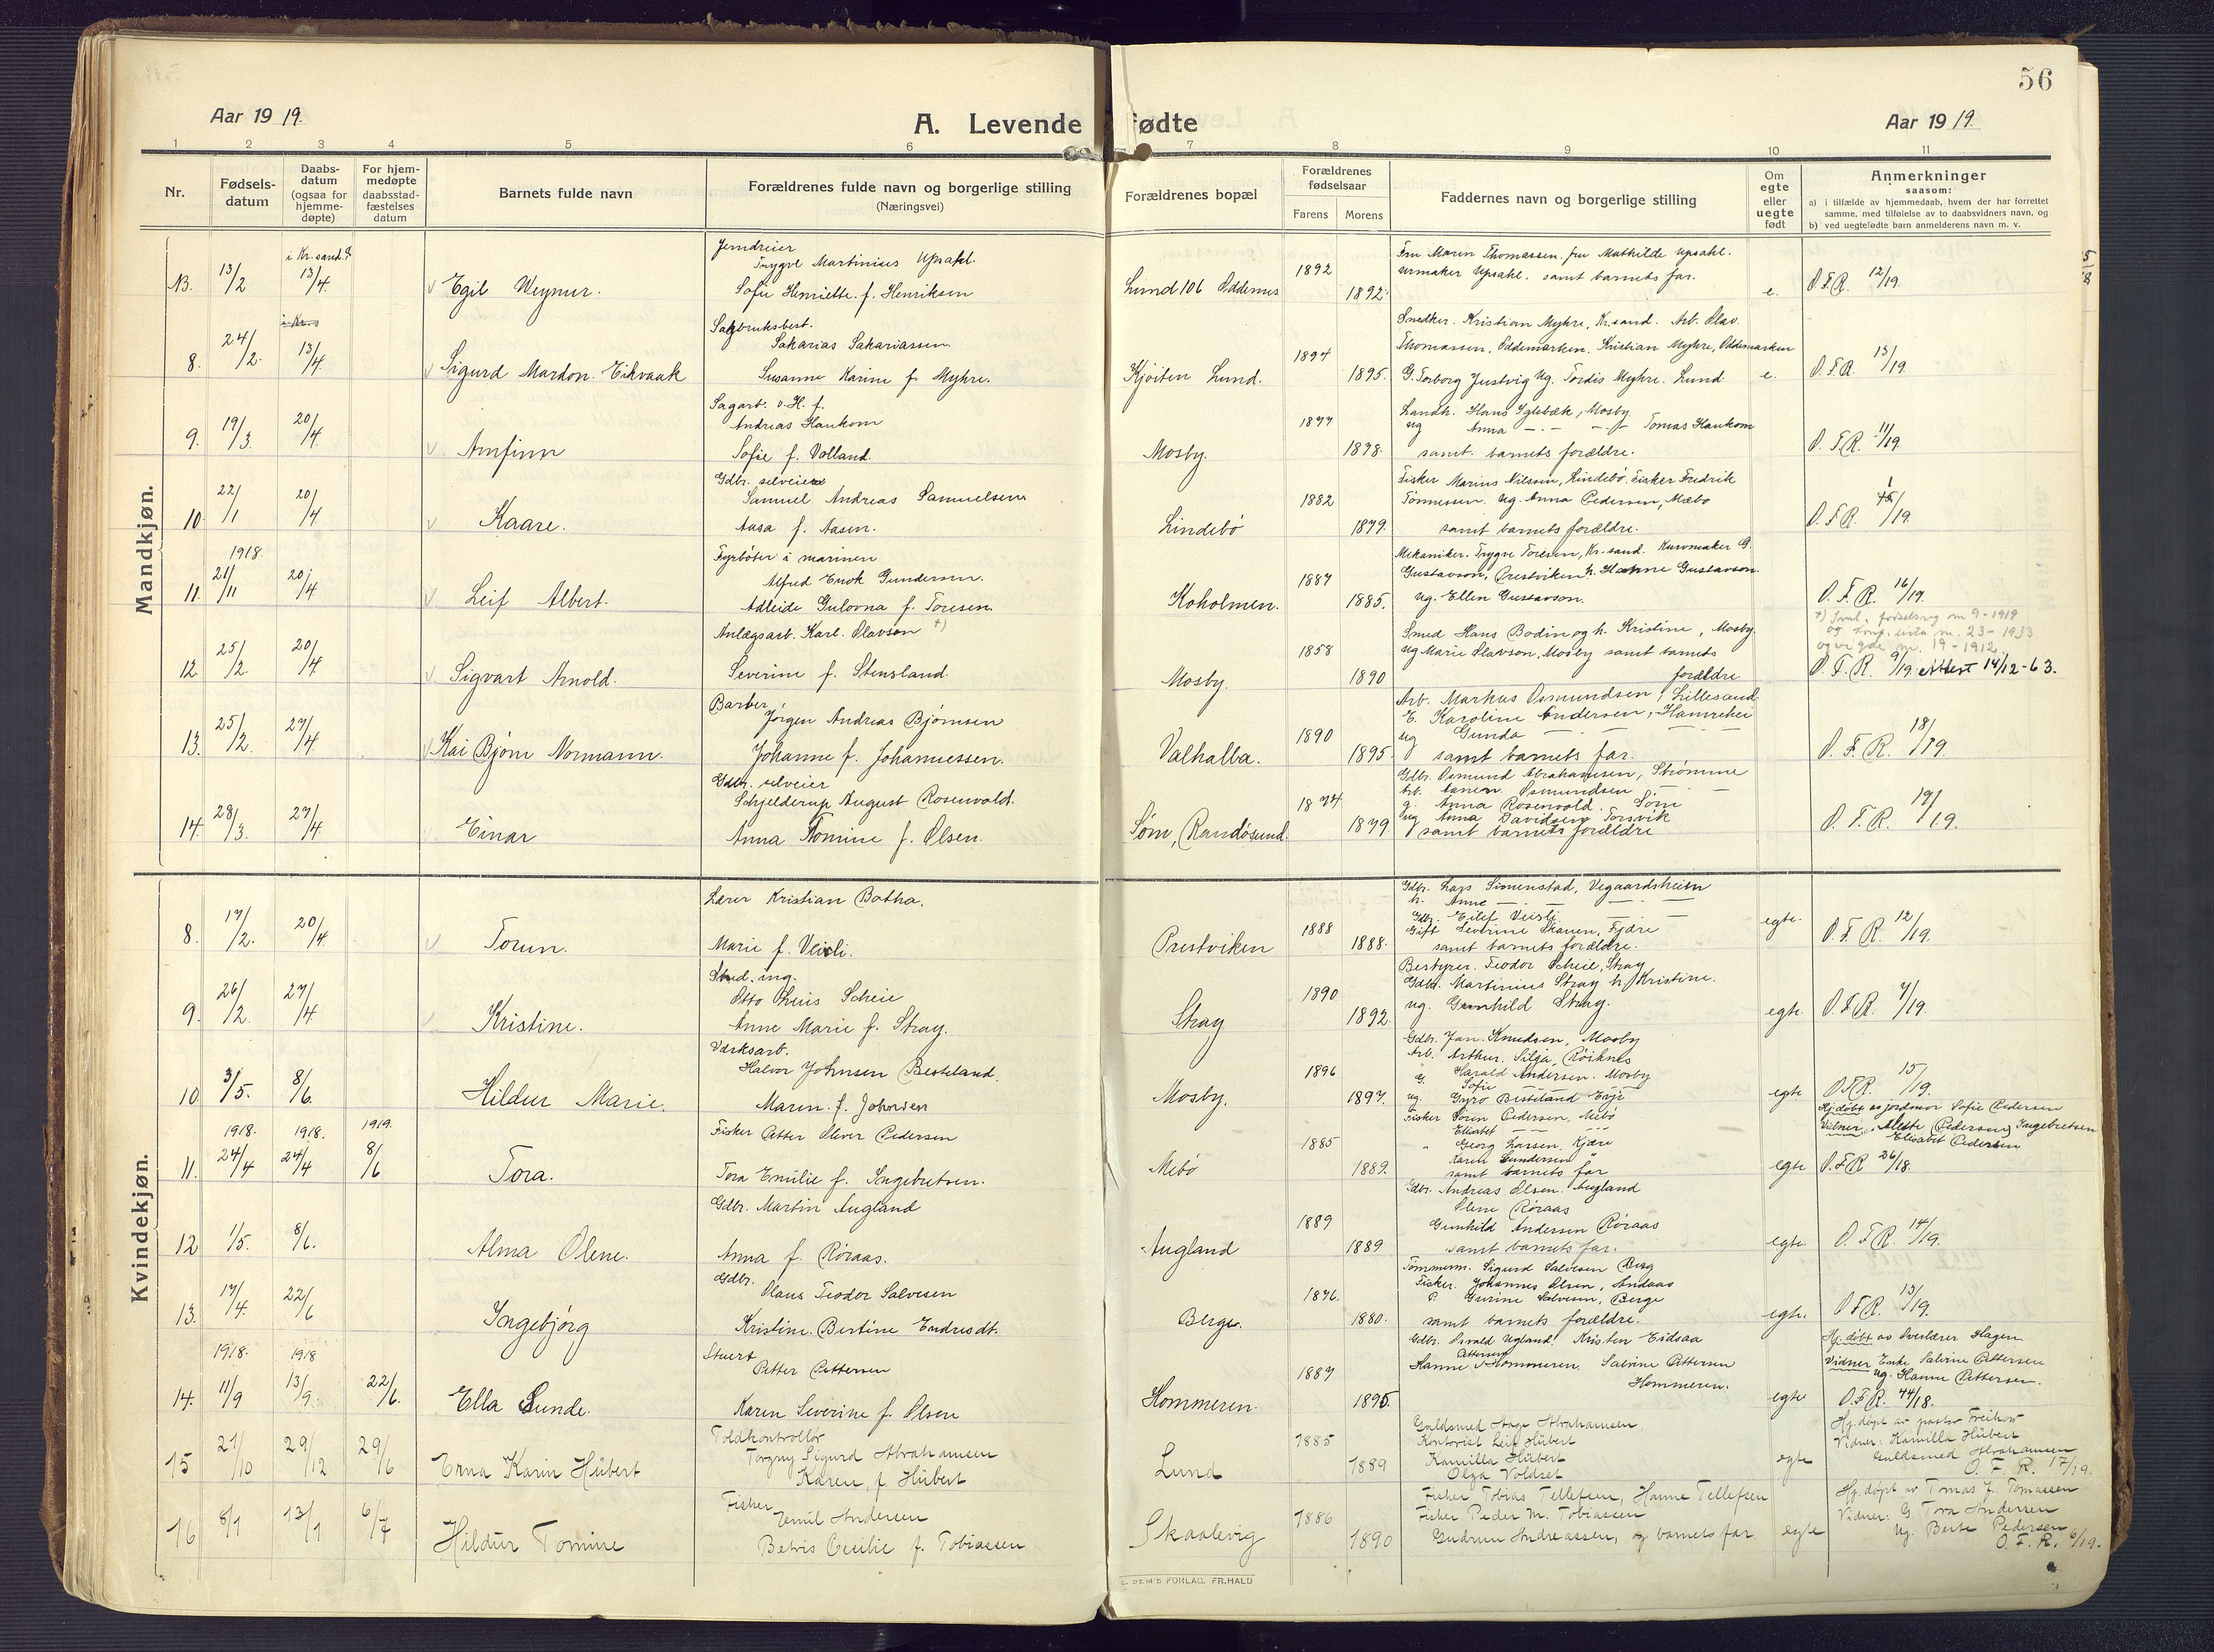 56
Aar 1919.
A. Levende fødte
Aar 1919
1 2 3 4 5 6 7 8 9 10 11
Nr.
Fødselsdatum
Daabsdatum (ogsaa for hjemmedøpte)
For hjemmedøpte daabsstadfæstelses datum
Barnets fulde navn
Forældrenes fulde navn og borgerlige stilling
(Næringsvei)
Forældrenes bopæl
Forældrenes fødselsaar
Farens Morens
Faddernes navn og borgerlige stilling
Om egte eller uegte født
Anmerkninger
saasom:
a) i tilfælde av hjemmedaab, hvem der har forrettet samme, med tilføielse av to daabsvidners navn, og
b) ved uegtefødte barn anmelderens navn m. v.
Mandkjøn.
i Kr.sand.
13/2 13/4 Egil
Trygve Martinius Upsahl.
Sofie Henriette f. Henriksen
Lund 106 Oddernes 1892 1892
Fru Maren Thomassen. fru Mathilde Upsahl.
urmaker Upsahl. samt barnets far.
e. O.F.R. 12/19.
8. 24/2. 13/4. Sigurd Mardon. Eikvaak
Sagbruksbest.
Sakarias Sakariassen
Susanne Karine f. Myhre.
Kjøiten Lund. 1894 1895.
Snedker. Kristian Myhre, Kr.sand. Arb. Olav.
Thomassen, Oddemarken. Kristian Myhre, Oddemarken
G. Torborg Justvig Ug. Tordis Myhre. Lund.
e. O.F.R. 13/19.
9. 19/3. 20/4. Arnfinn
Sagarb. v. H. f.
Andreas Haukom
Sofie f. Volland.
Mosby. 1877 1878.
Landh. Hans Iglebæk, Mosby
ug Anna — Tomas Haukom
samt. barnets forældre.
O.F.R. 11/19.
10 22/1 20/4 Kaare.
Gdbr. selveier
Samuel Andreas Samuelsen
Aasa f. Aasen.
Lindebø 1882 1879.
Fisker Marius Nilssen, Lindebø. Fisker Fredrik
Tønnessen. Ug. Anna Pedersen, Mæbø
samt barnets forældre.
O.F.R. 1/19.
1918.
11. 21/11 20/4 Leif Albert.
Fyrbøter i marinen
Alfred Enok Gundersen.
Adleide Gulovna f. Toresen.
Koholmen. 1887 1885.
Mekaniker. Trygve Toresen, Kr.sand. Kurvmaker G.
Gustavson, Prestviken h. Hanne Gustavson
Ug. Ellen Gustavson.
O.F.R. 16/19.
12. 25/2. 20/4 Sigvart Arnold.
Anlægsarb. Karl. Olavson +)
Severine f. Stensland.
Mosby. 1858 1890
Smed Hans Bodin og h. Kristine, Mosby.
ug Marie Olavson, Mosby samt barnets
forældre
og vigde nr. 19-1912
O.F.R. 9/19. Attest 14/12-63.
13. 25/2. 27/4. Kai Bjørn Normann.
Barber
Jørgen Andreas Bjørnsen
Johanne f. Johannessen.
Valhalla. 1890 1895.
Arb. Markus Osmundsen, Lillesand
E. Karoline Andersen, Hamreheia
ug Gunda — — —
samt barnets far.
O.F.R. 18/19.
14. 28/3. 27/4 Einar
Gdbr. selveier
Schjelderup August Rosenvold.
Anna Tomine f. Olsen.
Søm, Randøsund. 1874 1879.
Gdbr. Osmund Abrahamsen, Strømme
g. Anna Rosenvold. Søm
ug Anna Davidsen Torsvik
samt barnets forældre
O.F.R. 19/19.
Kvindekjøn.
8. 17/2. 20/4. Torun.
Lærer Kristian Botha.
Marie f. Veisli.
Prestviken 1888 1888.
Gdbr. Lars Simenstad, Vegaardsheien
h. Anne — — —
Gdbr. Eilef Veisli — —
Gift Severine Skauen, Fjære
samt barnets forældre.
egte. O.F.R. 12/19.
9. 26/2. 27/4 Kristine.
Stud. ing.
Otto Thuis Scheie
Anne Marie f. Stray.
Stray 1890 1892.
Bestyrer. Teodor Scheie, Stray
Gdbr. Martinius Stray h. Kristine.
ug. Gunhild Stray.
egte. O.F.R. 7/19.
10. 3/5. 8/6. Hildur Marie.
Værksarb.
Halvor Johnsen Besteland.
Maren. f. Johnsen
Mosby. 1896 1897.
Gdbr. Jan. Knudsen, Mosby
Arb. Arthur. Silja, Røiknes
G. Harald Andersen. Mosby
Sofie
ug. Gyro Besteland Evje
egte O.F.R. 15/19.
1918. 1918. 1919.
11. 24/4 24/4 8/6 Tora.
Fisker Petter Oliver Pedersen
Tora Emilie f. Ingebretsen.
Mebø 1885 1889.
Fisker Søren Pedersen, Mebø
Elisabet — —
" Georg Larsen, Kjære
Karen Gundersen "
samt barnets far
egte
Hj. døbt av jordmor Sofie Pedersen
Vidner. Mette (Pedersen) Ingebretsen
Elisabet Pedersen
O.F.R. 26/18.
12 1/5. 8/6. Alma Olene.
Gdbr. Martin Augland
Anna f. Røraas.
Augland 1889 1889
Gdbr. Andreas Olsen. Augland
Olene Røraas
Gunhild Andersen Røraas
samt barnets far.
egte. O.F.R. 14/19.
13. 17/4. 22/6 Ingebjørg
Gdbr.
Olaus Teodor Salvesen
Kristine. Bertine Endresdt.
Berge. 1876. 1880.
Tømmerm. Sigurd Salvesen Berg
Fisker. Johannes Olsen, Andaas
P. Gurine Salvesen, Berge
samt barnets forældre.
egte. O.F.R. 13/19.
1918. 1918
14. 11/9 13/9. 22/6. Ella Sunde.
Stuert
Petter Pettersen
Karen Severine f. Olsen
Hommeren. 1887 1895.
Gdbr. Osvald Ugland. Kristen Eidsaa
Pettersen
Hanne Hommeren. Salvine Pettersen
Hommeren.
egte
Hj. døbt av Overlærer Hagen.
Vidner Enke Salvine Pettersen
ug. Hanne Pettersen.
O.F.R. 44/18.
15 21/10 29/12 29/6 Erna Karin Hübert
Toldkontrollør
Torgny Sigurd Abrahamsen
Karen f. Hübert
Lund 1885 1889
Guldsmed Aage Abrahamsen,
Kontorist Leif Hübert
Kamilla Hübert
Olga Voldset
egte
Hj. døpt av pastor Freihow
Vidner: Kamilla Hübert
Guldsmed Abrahamsen
O.F.R. 17/19.
16 8/1 13/1 6/7 Hildur Tomine
Fisker
Emil Andersen
Betris Cecilie f. Tobiassen
Skaalevig 1886 1890
Fisker Tobias Tellefsen, Hanne Tellefsen
Fisker Peder M. Tobiassen
Gudrun Andreassen, og barnets far
egte
Hj. døpt av Tomas J. Tomassen
Vidner: G. Tora Andersen
Ug. Berte Pedersen
O.F.R. 6/19.
FORLAG. FR. HALD